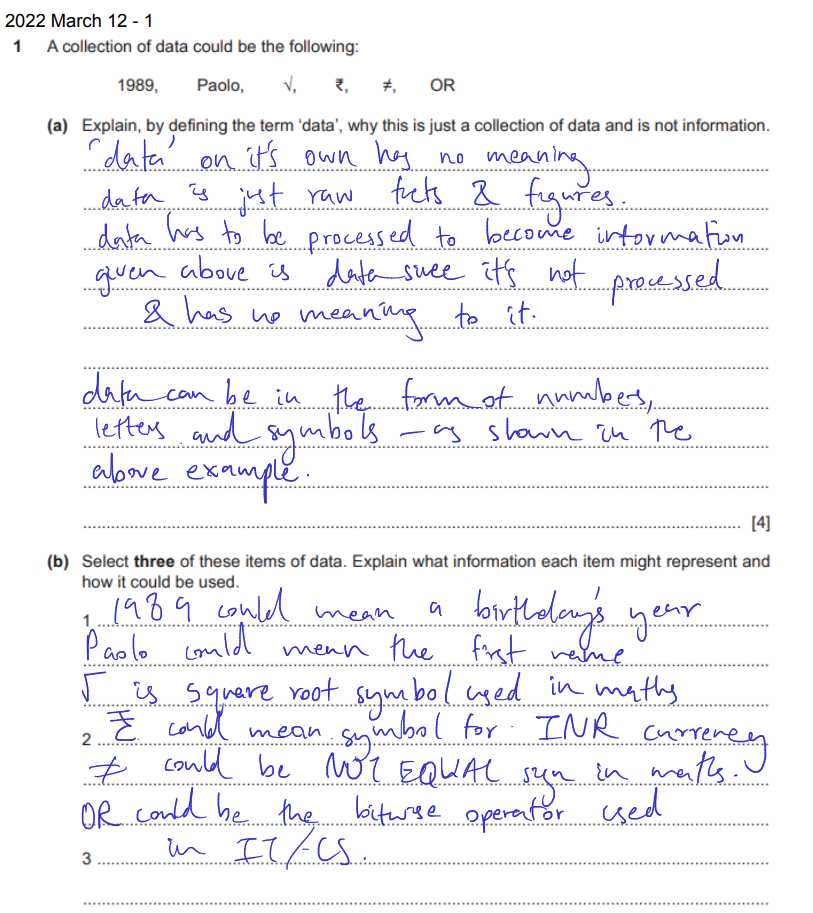 2022 March 12 - 1
1 A collection of data could be the following:
1989, Paolo, √, ₹, ≠, OR
(a) Explain, by defining the term ‘data’, why this is just a collection of data and is not information.
'data' on it's own has no meaning
data is just raw facts & figures.
data has to be processed to become information
given above is data since it's not processed
& has no meaning to it.
data can be in the form of numbers,
letters and symbols – as shown in the
above example.
[4]
(b) Select three of these items of data. Explain what information each item might represent and
how it could be used.
1 1989 could mean a birthday's year
Paolo could mean the first name
√ is square root symbol used in maths
2 ₹ could mean symbol for INR currency
≠ could be NOT EQUAL sign in maths.
OR could be the bitwise operator used
3 in IT/CS.